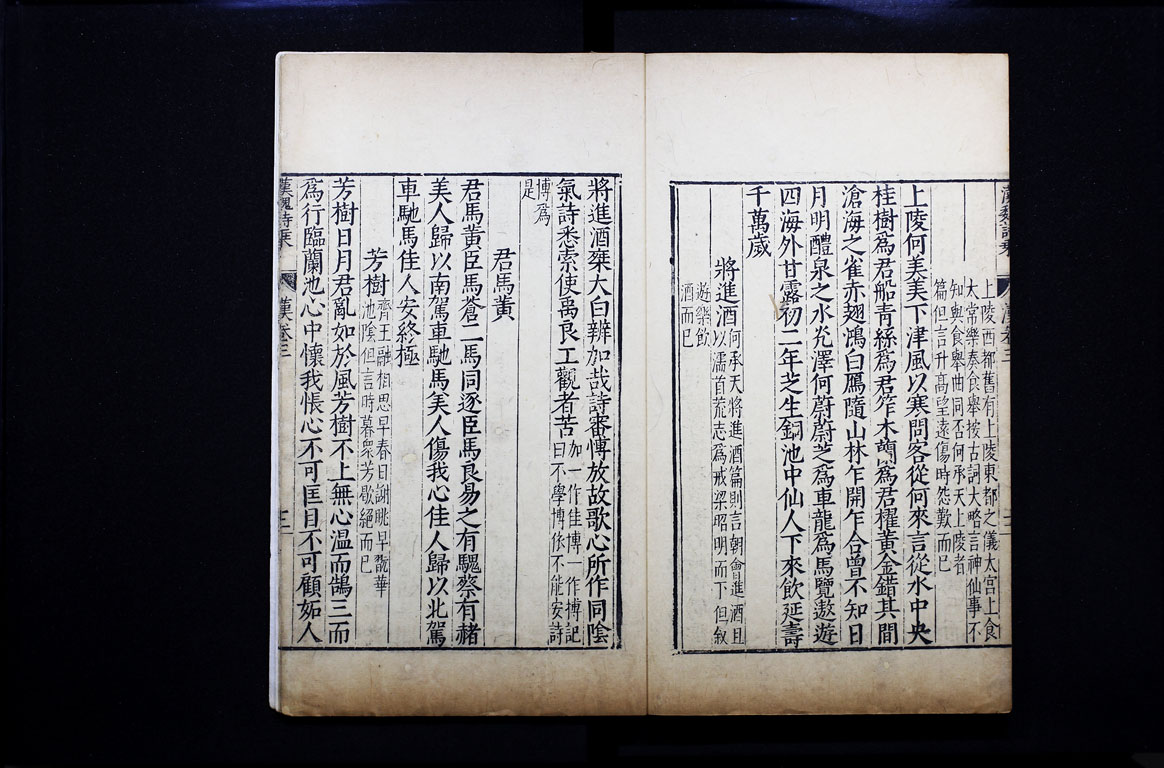 上陵西都舊有上陵東都之儀太宮上食
太常樂奏食舉按古詞大略言神仙事不
知與食舉曲同否何承天上陵者
篇但言升高望遠傷時怨歎而已
上陵何美美下津風以寒問客從何來言從水中央
桂樹爲君船青絲爲君笮木蘭爲君櫂黃金錯其間
滄海之雀赤翅鴻白鴈隨山林乍開乍合曾不知日
月明醴泉之水光澤何蔚蔚芝爲車龍爲馬覽遨遊
四海外甘露初二年芝生銅池中仙人下來飲延壽
千萬歲
將進酒何承天將進酒篇則言朝會進酒且
以濡首荒志爲戒梁昭明而下但敘
遊樂飲
酒而已
將進酒乗大白辨加哉詩審慱放故歌心所作同陰
氣詩悉索使禹良工觀者苦加一作佳慱一作搏記
曰不學博依不能安詩
博爲
是
君馬黃
君馬黃臣馬蒼二馬同逐臣馬良易之有騩蔡有赭
美人歸以南駕車馳馬美人傷我心佳人歸以北駕
車馳馬佳人安終極
芳樹齊王融相思早春日謝朓早翫華
池陰但言時暮衆芳歇絕而已
芳樹日月君亂如於風芳樹不上無心温而鵠三而
爲行臨蘭池心中懷我悵心不可匡目不可顧妬人
漢魏詩
漢卷三